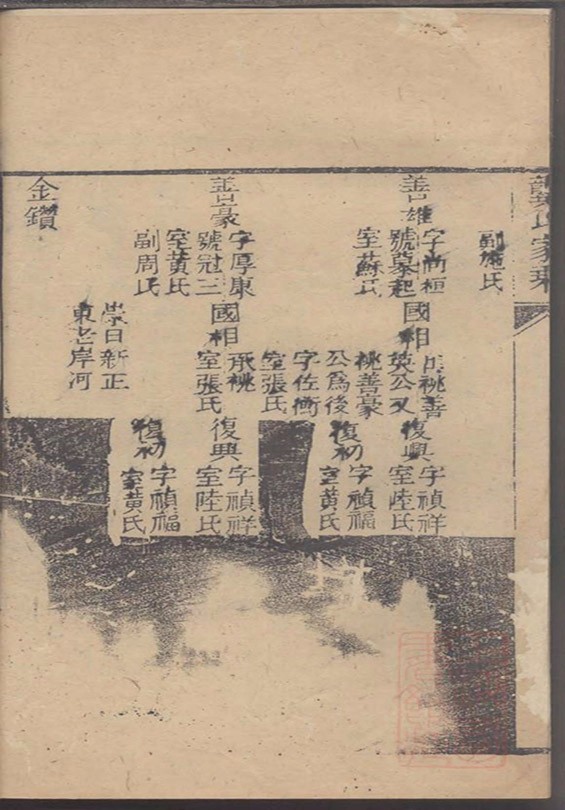 龔氏家乘
副施氏
善雄
字尚桓
號慕起
室蘇氏
國相
出祧善
英公又
祧善豪
公為後
字佐衡
室張氏
復興
字禎祥
室陸氏
復初
字禎福
室黃氏
善豪
字厚康
號冠三
室黃氏
副周氏
國相
承祧
室張氏
復興
字禎祥
室陸氏
復初
字禎福
室黃氏
崇日新正
東老岸河
金鑽